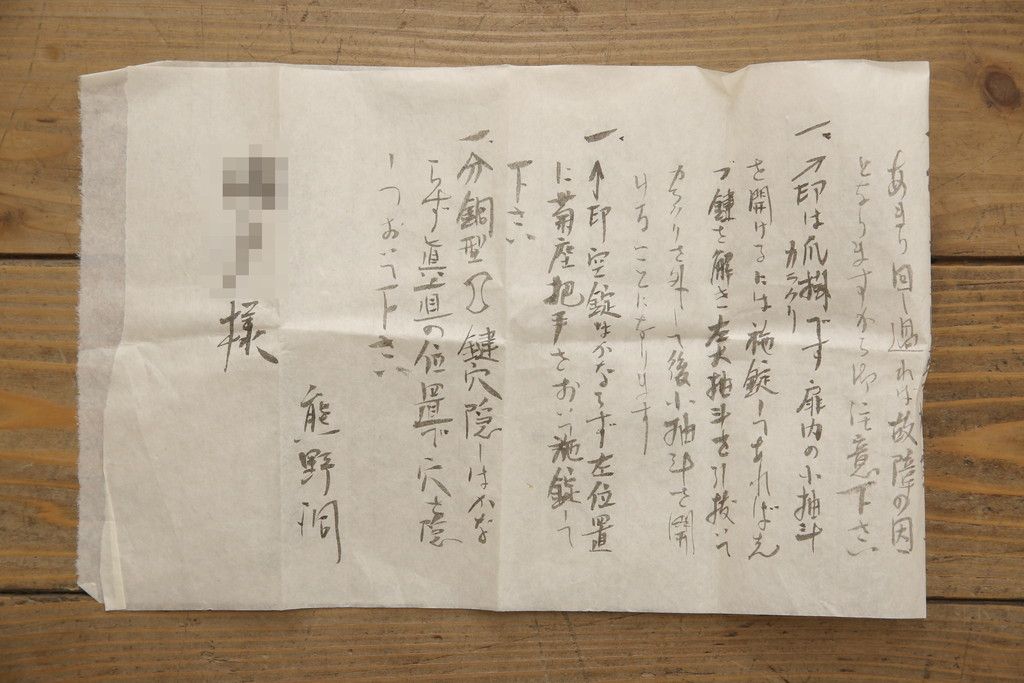 あまり回し過れば故障の因
となりますから御注意下さい
一、↗印は爪掛です 扉内の小抽斗
カラクリ
を開けるには施錠してあれば先
づ鍵を解き左大抽斗を引抜いて
カラクリを外して後小抽斗を開
けることになります
一、↑印空錠はかならず左位置
に菊座把手をおいて施錠して
下さい
一、分銅型 鍵穴隠しはかな
らず真直の位置で穴を隠
しつおいて下さい
熊野洞
様